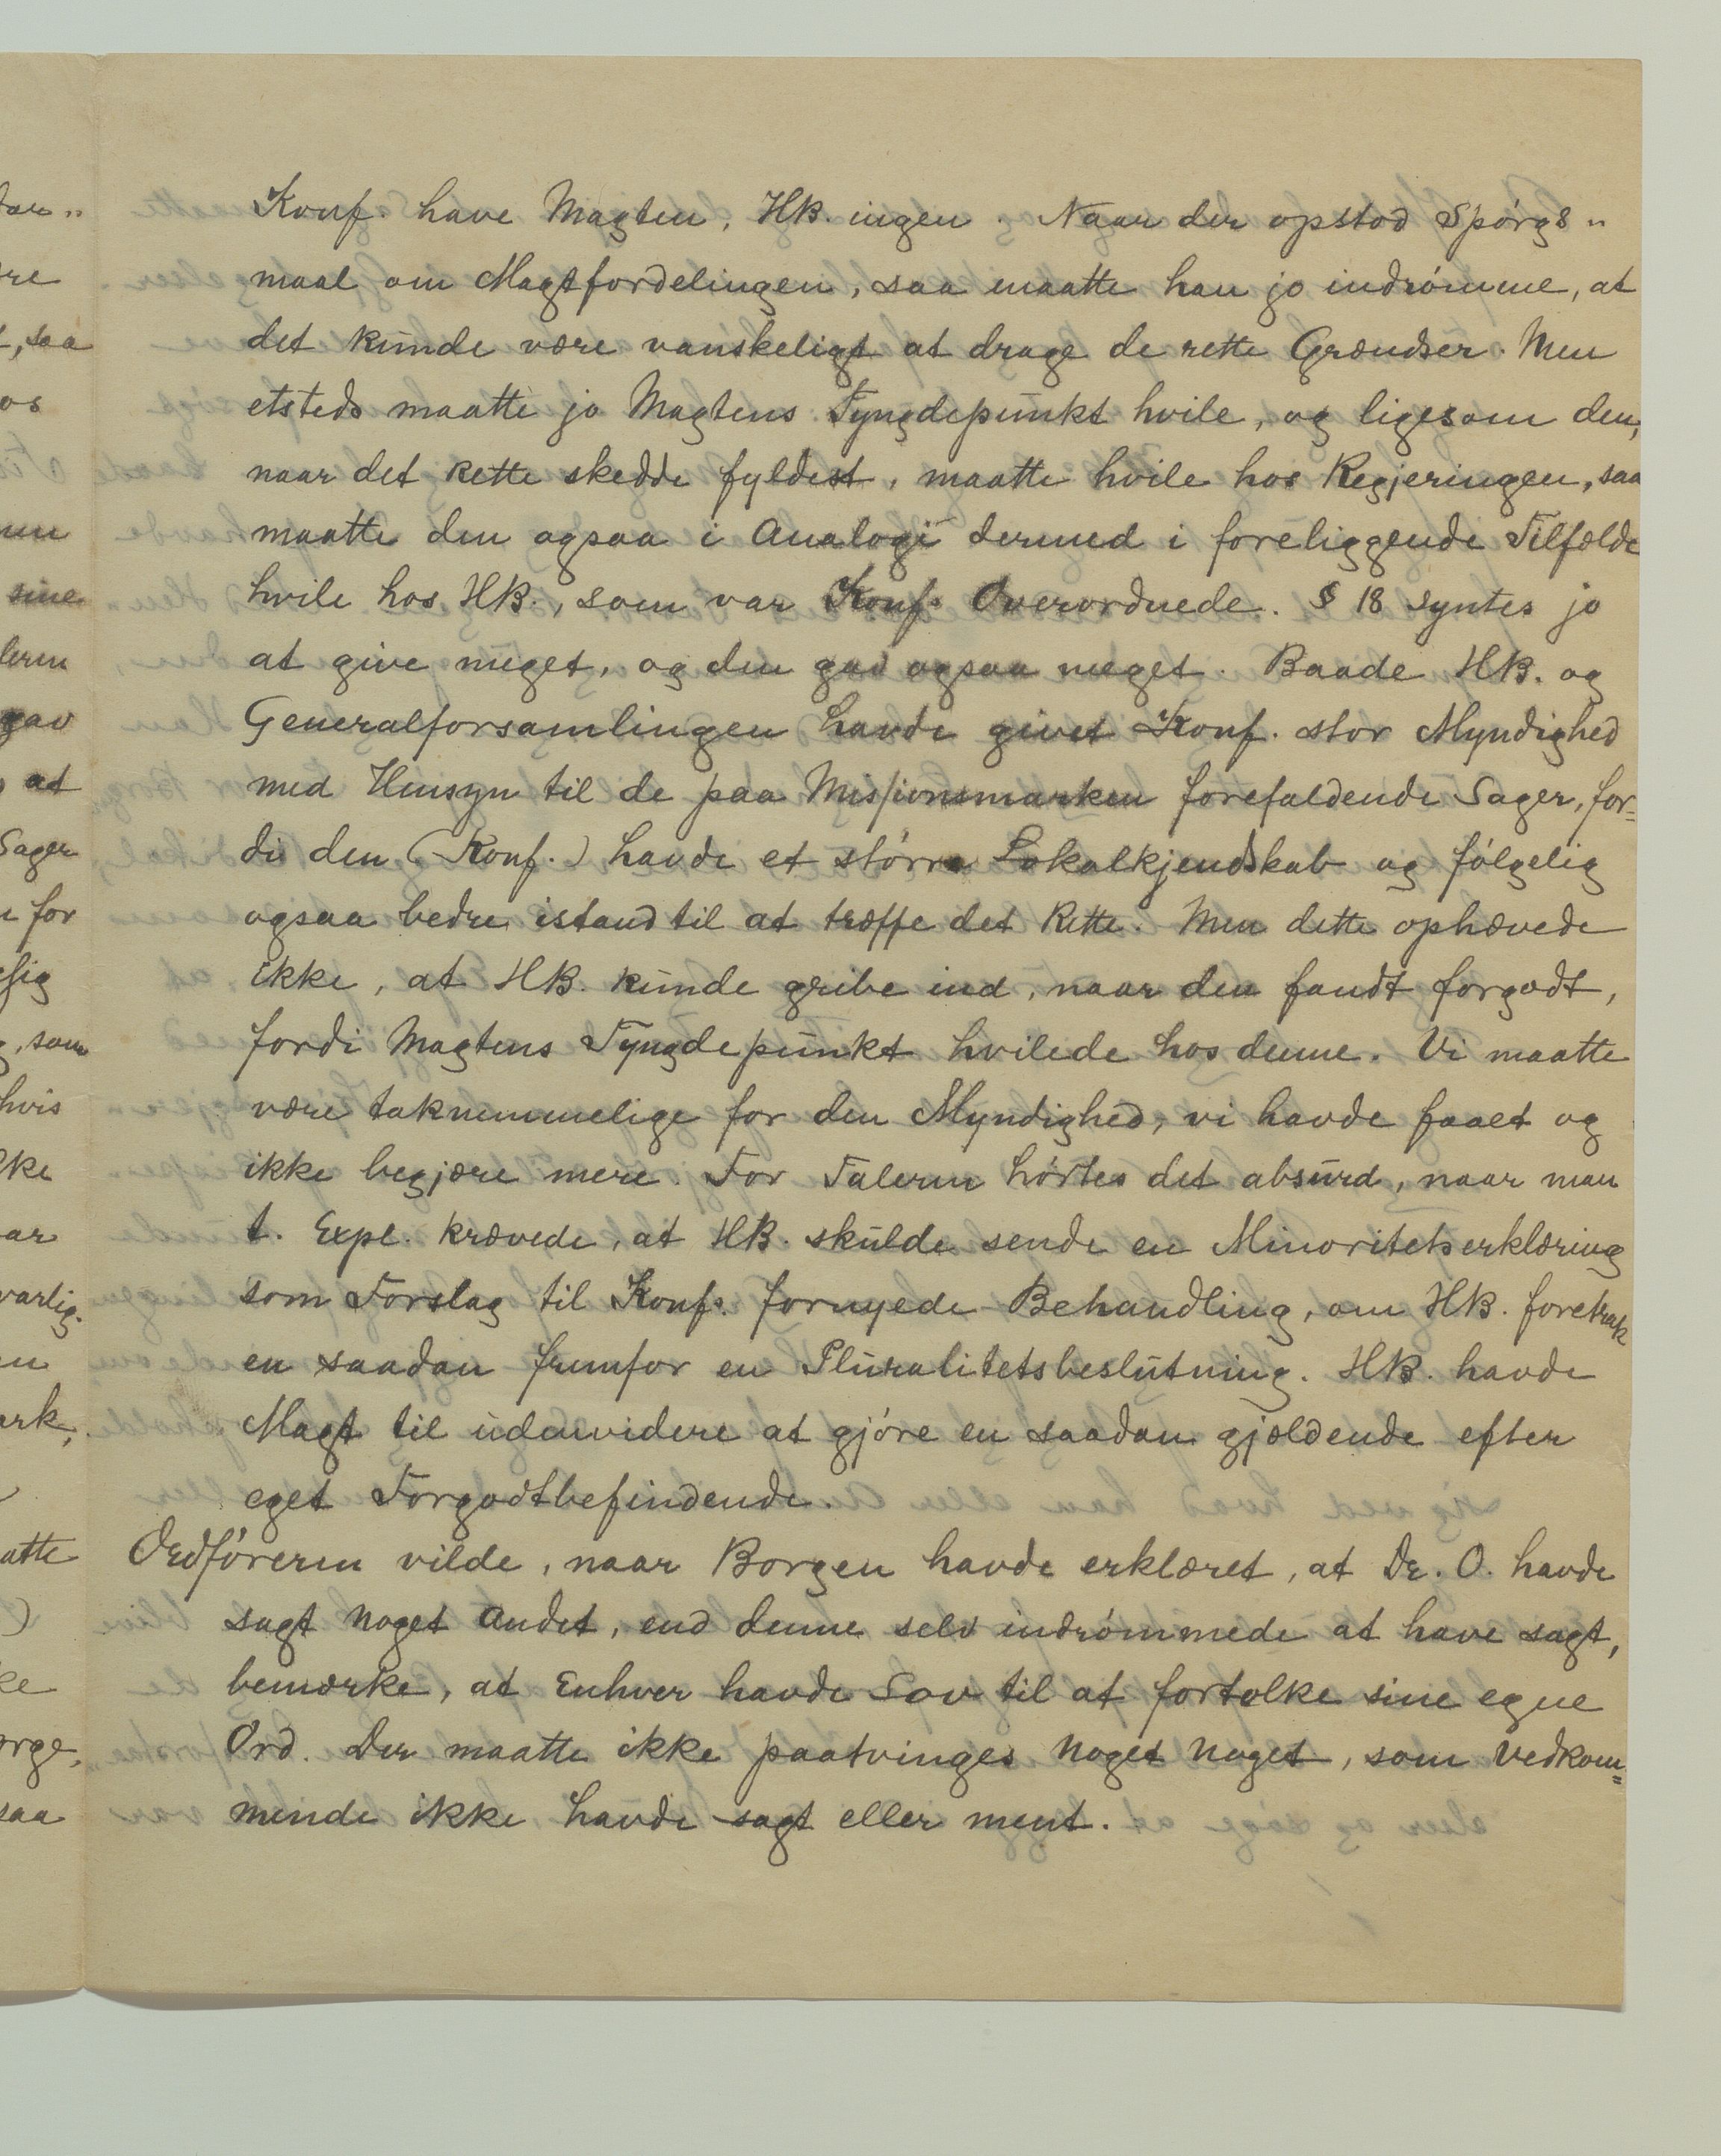 Konf. have Magten, HB. ingen. Naar der opstod Spörgs„
maal om Magtfordelingen, saa maatte han jo indrömme, at
det kunde være vanskeligt at drage de rette Grændser. Men
etsteds maatte jo Magtens Tyngdepunkt hvile, og ligesom den,
naar det Rette skedde fyldest, maatte hvile hos Regjeringen, saa
maatte den ogsaa i Analogi dermed i foreliggende Tilfælde
hvile hos HB., som var Konfs Overordnede. § 18 syntes jo
at give meget, og den gav ogsaa meget. Baade HB. og
Generalforsamlingen havde givet Konf. stor Myndighed
med Hensyn til de paa Missionsmarken forefaldende Sager, for=
di den (Konf.) havde et större Lokalkjendskab og fölgelig
ogsaa bedre istand til at træffe det Rette. Men dette ophævede
ikke, at HB. kunde gribe ind, naar den fandt forgodt,
fordi Magtens Tyngdepunkt hvilede hos denne. Vi maatte
være taknemmelige for den Myndighed, vi havde faaet og
ikke begjære mere. For Taleren hörtes det absurd, naar man
t. Expl. krævede, at HB. skulde sende en Minoritetserklæring
som Forslag til Konfs. fornyede Behandling, om HB. foretrak
en saadan fremfor en Pluralitetsbeslutning. HB. havde
Magt til udenvidere at gjöre en saadan gjældende efter
eget Forgodtbefindende.
Ordföreren vilde, naar Borgen havde erklæret, at Dr. O. havde
sagt noget andet, end denne selv indrömmede at have sagt,
bemærke, at Enhver havde Lov til at fortolke sine egne
Ord. Der maatte ikke paatvinges Noget noget, som Vedkom=
mende ikke havde sagt eller ment.